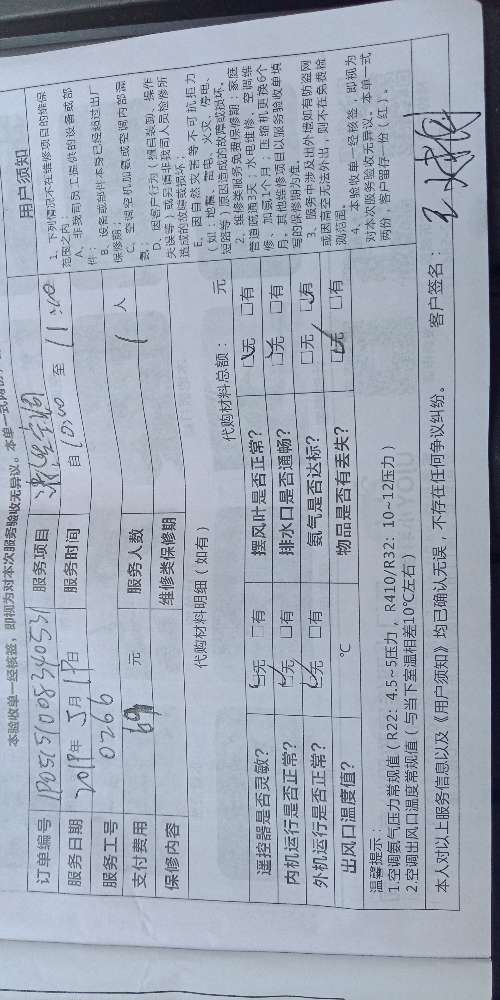 本验收单一经核签，即视为对本次服务验收无异议。本单一式两份，
订单编号
服务项目
用户须知
服务日期 2019年5月19日
服务时间 自 10:00 至 11:00
服务工号 0266
支付费用 69 元
服务人数 1 人
保修内容
维修类保修期
1、下列情况不在维修项目的维保范围之内：
A、非我司员工提供的设备或部件；
B、设备或部件本身已经超过出厂保修期；
C、空调空机加氨或空调内部漏氨；
D、因客户行为（擅自装卸、操作失误等）或另请非我司人员检修所造成的故障或损坏；
E、因自然灾害等不可抗拒力（如：地震、雷电、火灾、停电、短路等）原因造成的故障或损坏。
2、维修类服务免费保修期：家庭管道疏通3天，水电维修、空调维修、加氨1个月；压缩机更换6个月；其他维修项目以服务验收单填写的保修期为准。
3、服务中涉及出外墙如有防盗网或因高空无法外出，则不在免费检测范围。
4、本验收单一经核签，即视为对本次服务验收无异议。本单一式两份，客户留存一份（红）。
代购材料明细（如有）
代购材料总额： 元
遥控器是否灵敏？ □无 □有
摆风叶是否正常？ □无 □有
内机运行是否正常？ □无 □有
排水口是否通畅？ □无 □有
外机运行是否正常？ □无 □有
氨气是否达标？ □无 □有
出风口温度值？ ℃
物品是否有丢失？ □无 □有
温馨提示：
1.空调氨气压力常规值（R22：4.5~5压力，R410/R32：10~12压力）
2.空调出风口温度常规值（与当下室温相差10℃左右）
本人对以上服务信息以及《用户须知》均已确认无误，不存在任何争议纠纷。
客户签名：